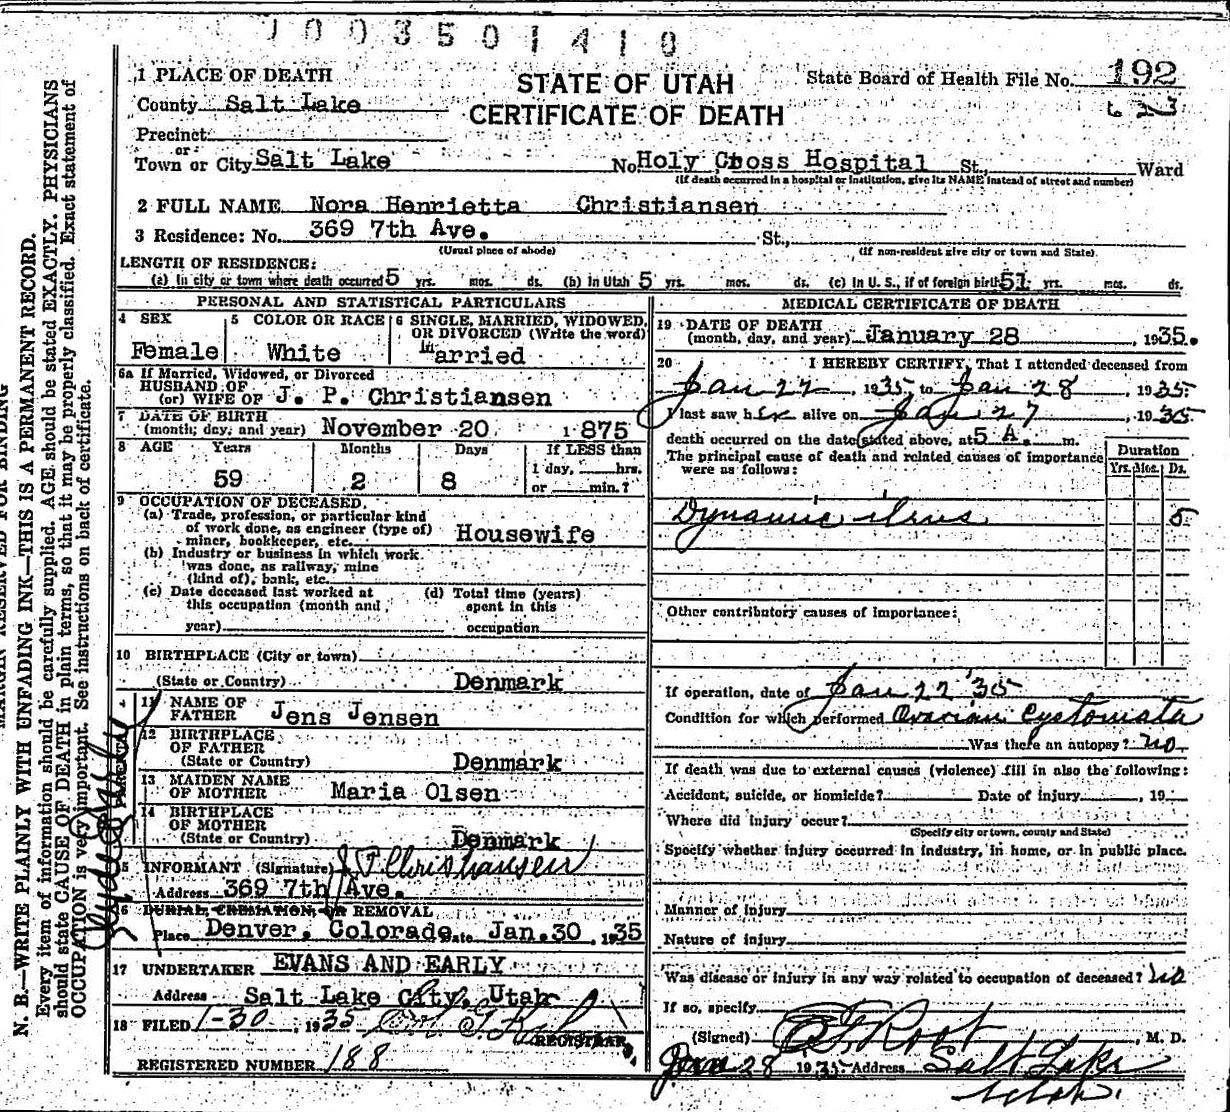 1003501410
1 PLACE OF DEATH
STATE OF UTAH
CERTIFICATE OF DEATH
State Board of Health File No. 192
County Salt Lake
Precinct
or
Town or City Salt Lake No. Holy Cross Hospital St., Ward
(If death occurred in a hospital or institution, give its NAME instead of street and number)
2 FULL NAME Nora Henrietta Christiansen
3 Residence: No. 369 7th Ave. St.,
(Usual place of abode) (If non-resident give city or town and State)
LENGTH OF RESIDENCE:
(a) In city or town where death occurred 5 yrs. mos. ds. (b) In Utah 5 yrs. mos. ds. (c) In U. S., if of foreign birth 51 yrs. mos. ds.
PERSONAL AND STATISTICAL PARTICULARS
4 SEX
Female
5 COLOR OR RACE
White
6 SINGLE, MARRIED, WIDOWED,
OR DIVORCED (Write the word)
Married
6a If Married, Widowed, or Divorced
HUSBAND OF
(or) WIFE OF J. P. Christiansen
7 DATE OF BIRTH
(month, day, and year) November 20 1875
8 AGE Years Months Days If LESS than
1 day, hrs.
59 2 8 or min.?
9 OCCUPATION OF DECEASED.
(a) Trade, profession, or particular kind
of work done, as engineer (type of)
miner, bookkeeper, etc. Housewife
(b) Industry or business in which work
was done, as railway, mine
(kind of), bank, etc.
(c) Date deceased last worked at
this occupation (month and
year)
(d) Total time (years)
spent in this
occupation
10 BIRTHPLACE (City or town)
(State or Country) Denmark
PARENTS
11 NAME OF
FATHER Jens Jensen
12 BIRTHPLACE
OF FATHER
(State or Country) Denmark
13 MAIDEN NAME
OF MOTHER Maria Olsen
14 BIRTHPLACE
OF MOTHER
(State or Country) Denmark
15 INFORMANT (Signature) J P Christiansen
Address 369 7th Ave.
16 BURIAL, CREMATION, OR REMOVAL
Place Denver, Colorado Date Jan. 30, 1935
17 UNDERTAKER EVANS AND EARLY
Address Salt Lake City, Utah
18 FILED 1-30, 1935
REGISTRAR
REGISTERED NUMBER 188
MEDICAL CERTIFICATE OF DEATH
19 DATE OF DEATH
(month, day, and year) January 28, 1935.
20 I HEREBY CERTIFY, That I attended deceased from
Jan 22, 1935 to Jan 28, 1935
I last saw her alive on Jan 27, 1935
death occurred on the date stated above, at 5 A. m.
The principal cause of death and related causes of importance
were as follows:
Duration
Yrs. Mos. Ds.
Dynamic ileus 5
Other contributory causes of importance:
If operation, date of Jan 22 '35
Condition for which performed Ovarian Cystomata
Was there an autopsy? no
If death was due to external causes (violence) fill in also the following:
Accident, suicide, or homicide? Date of injury, 19
Where did injury occur?
(Specify city or town, county and State)
Specify whether injury occurred in industry, in home, or in public place.
Manner of injury
Nature of injury
Was disease or injury in any way related to occupation of deceased? no
If so, specify
(Signed) E F Root, M. D.
Jan 28 1935 Address Salt Lake
Utah.
MARGIN RESERVED FOR BINDING
N. B.—WRITE PLAINLY WITH UNFADING INK—THIS IS A PERMANENT RECORD.
Every item of information should be carefully supplied. AGE should be stated EXACTLY. PHYSICIANS
should state CAUSE OF DEATH in plain terms, so that it may be properly classified. Exact statement of
OCCUPATION is very important. See instructions on back of certificate.